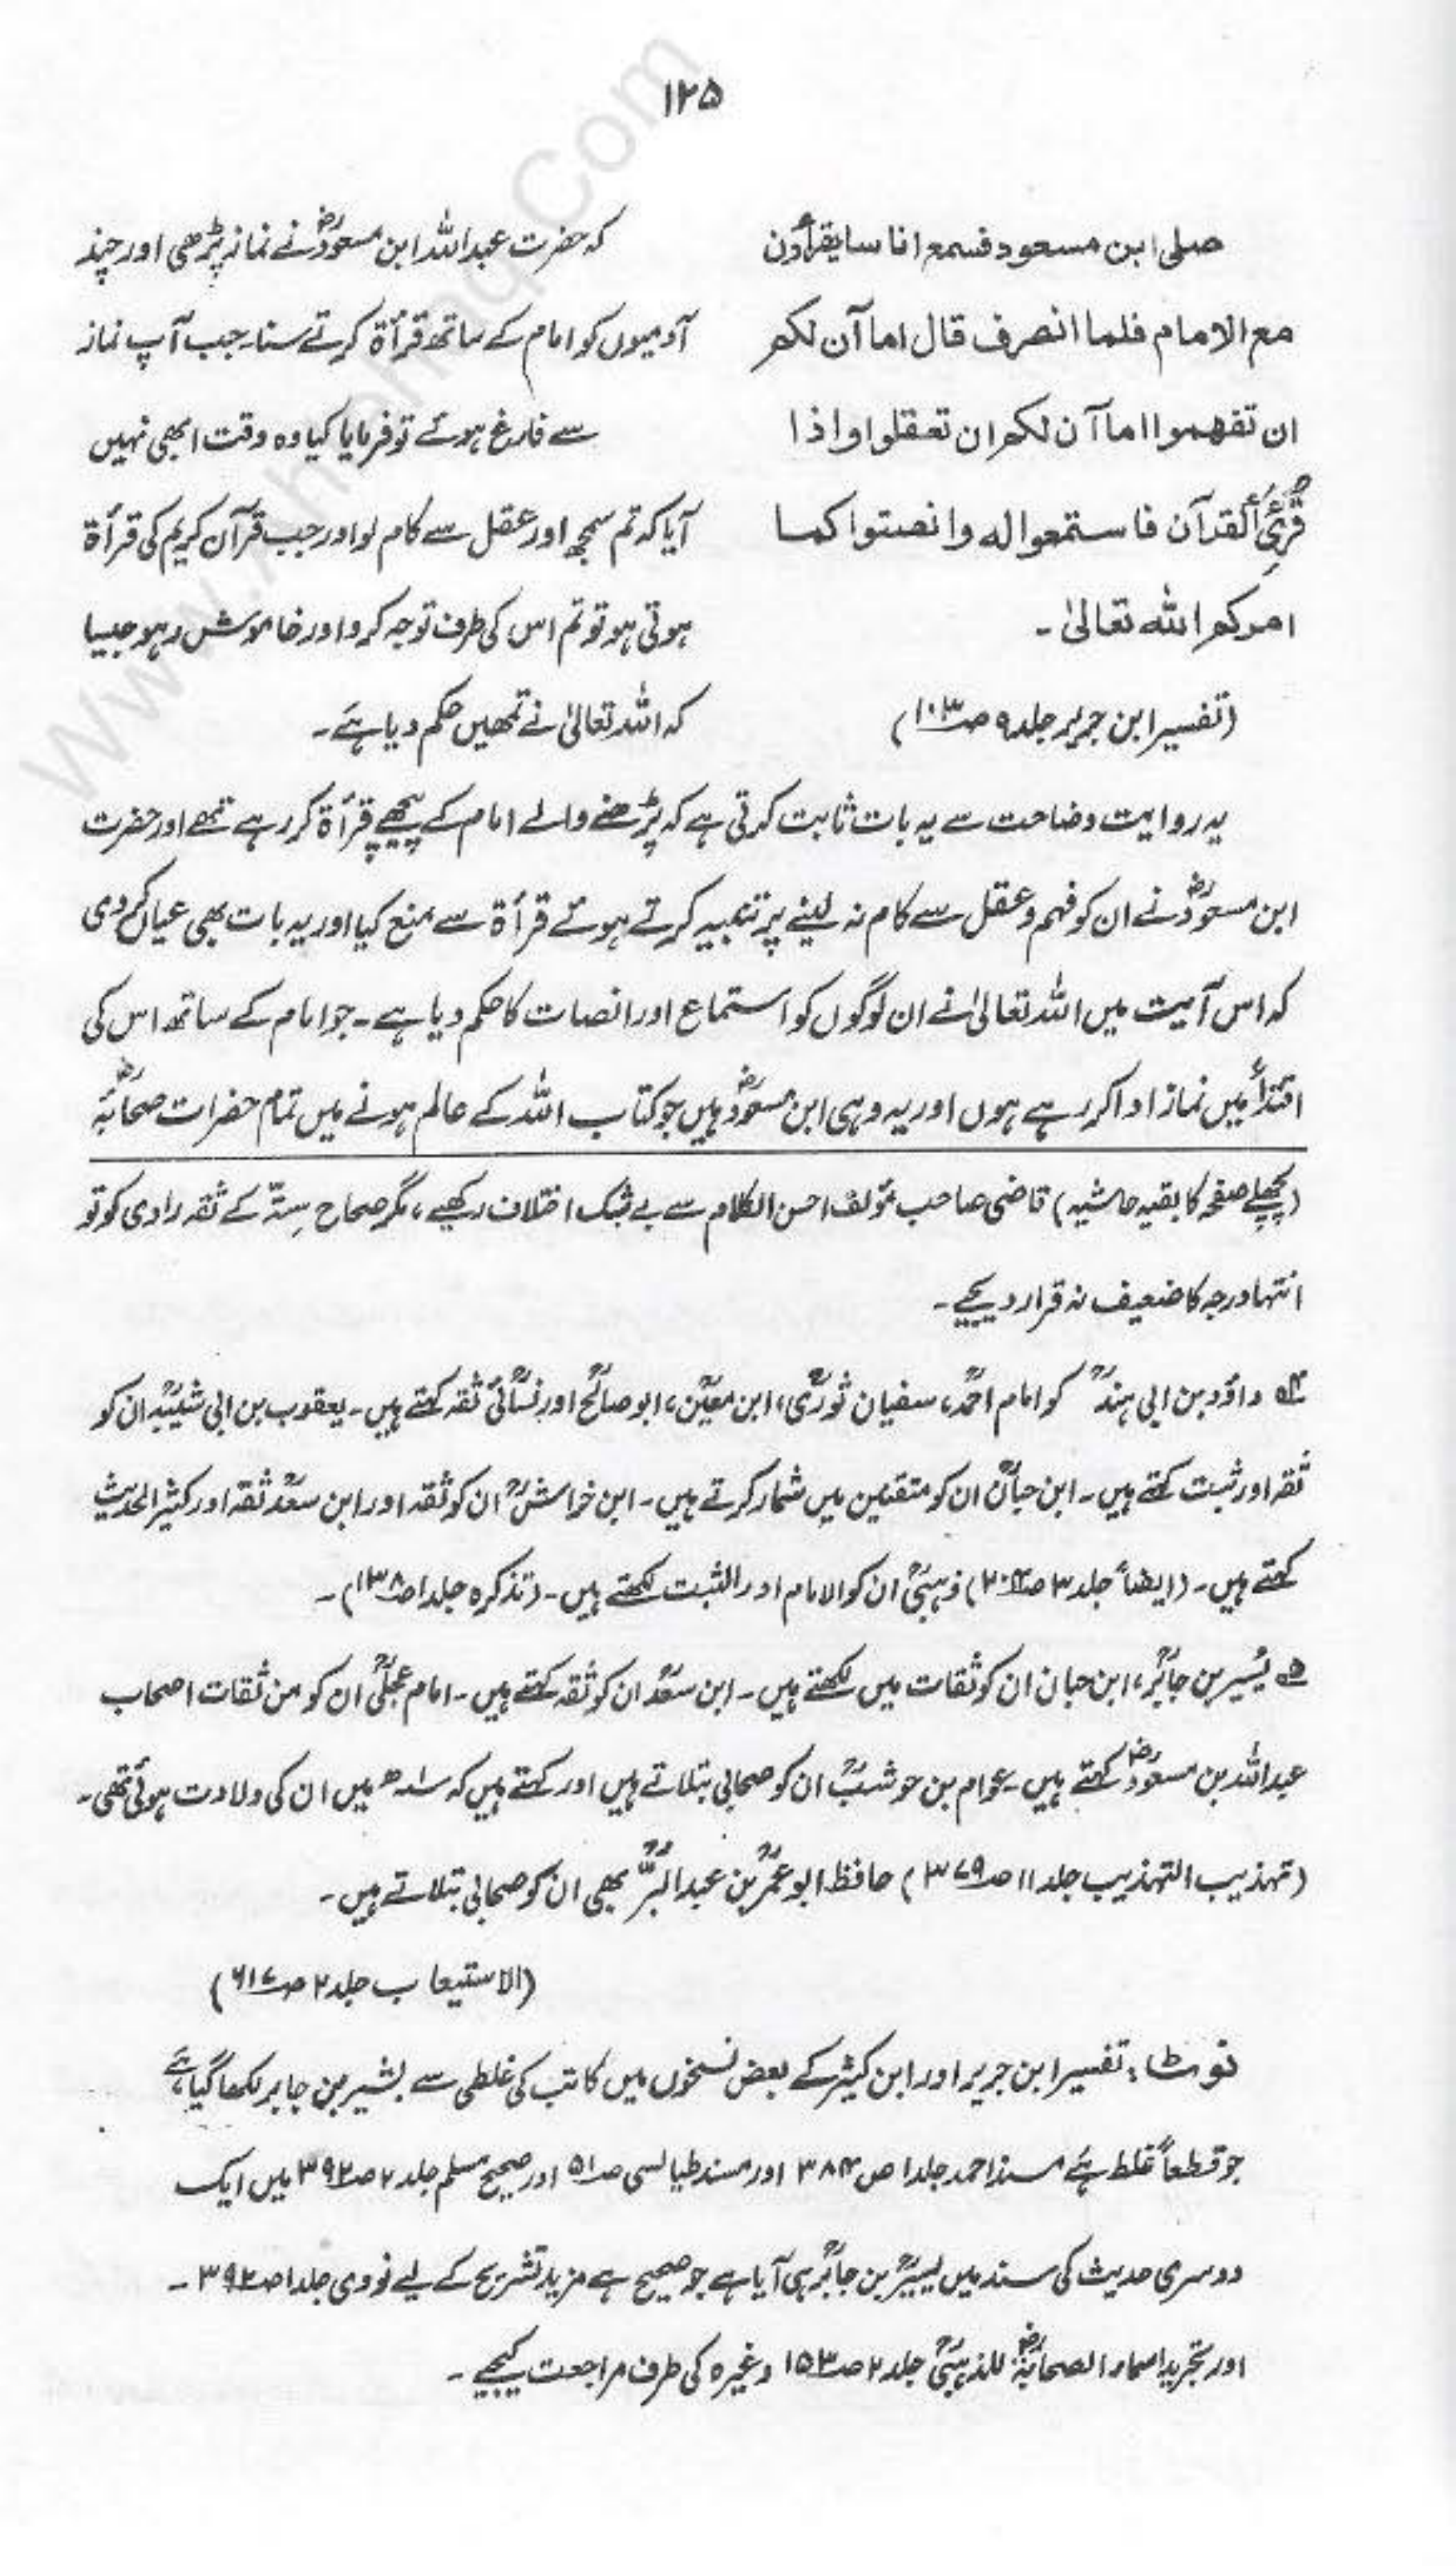 ۱۲۵
صلی ابن مسعود فسمع اناسا یقرأون
مع الامام فلما انصرف قال اما آن لکم
ان تفهموا اما آن لکم ان تعقلوا و اذا
قُرِئَ القرآن فاستمعوا له وانصتوا کما
امرکم الله تعالیٰ ۔
(تفسیر ابن جریر جلد ۹ ص۱۰۳)
کہ حضرت عبداللہ ابن مسعودؓ نے نماز پڑھی اور چند
آدمیوں کو امام کے ساتھ قرأۃ کرتے سنا۔ جب آپ نماز
سے فارغ ہوئے تو فرمایا کیا وہ وقت ابھی نہیں
آیا کہ تم سمجھ اور عقل سے کام لو اور جب قرآن کریم کی قرأۃ
ہوتی ہو تو تم اس کی طرف توجہ کرو اور خاموش رہو جیسا
کہ اللہ تعالیٰ نے تمھیں حکم دیا ہے۔
یہ روایت وضاحت سے یہ بات ثابت کرتی ہے کہ پڑھنے والے امام کے پیچھے قرأۃ کر رہے تھے اور حضرت
ابن مسعودؓ نے ان کو فہم و عقل سے کام نہ لینے پر تنبیہ کرتے ہوئے قرأۃ سے منع کیا اور یہ بات بھی عیاں کر دی
کہ اس آیت میں اللہ تعالیٰ نے ان لوگوں کو استماع اور انصات کا حکم دیا ہے۔ جو امام کے ساتھ اس کی
اقتدأ میں نماز ادا کر رہے ہوں اور یہ وہی ابن مسعودؓ ہیں جو کتاب اللہ کے عالم ہونے میں تمام حضرات صحابہؓ
(پچھلے صفحہ کا بقیہ حاشیہ) قاضی صاحب مؤلف احسن الکلام سے بے شک اختلاف رکھیے، مگر صحاح ستہ کے ثقہ راوی کو تو
انتہا درجہ کا ضعیف نہ قرار دیجیے۔
۴ داؤد بن ابی ہندؒ کو امام احمدؒ، سفیان ثوریؒ، ابن معینؒ، ابو صالحؒ اور نسائیؒ ثقہ کہتے ہیں۔ یعقوب بن ابی شیبہؒ ان کو
ثقہ اور ثبت کہتے ہیں۔ ابن حبانؒ ان کو متقنین میں شمار کرتے ہیں۔ ابن خراشؒ ان کو ثقہ اور ابن سعدؒ ثقہ اور کثیر الحدیث
کہتے ہیں۔ (ایضاً جلد ۳ ص۲۰۴) ذہبیؒ ان کو الامام اور الثبت لکھتے ہیں۔ (تذکرہ جلد ۱ ص۱۳۸)۔
۵ یُسیر بن جابرؒ، ابن حبان ان کو ثقات میں لکھتے ہیں۔ ابن سعدؒ ان کو ثقہ کہتے ہیں۔ امام عجلیؒ ان کو من ثقات اصحاب
عبداللہ بن مسعودؓ کہتے ہیں۔ عوام بن حوشبؒ ان کو صحابی بتلاتے ہیں اور کہتے ہیں کہ ۱ھ میں ان کی ولادت ہوئی تھی۔
(تہذیب التہذیب جلد ۱۱ ص۳۷۹) حافظ ابو عمرؒ بن عبدالبرؒ بھی ان کو صحابی بتلاتے ہیں۔
(الاستیعاب جلد ۲ ص۶۱۷)
نوٹ: تفسیر ابن جریر اور ابن کثیر کے بعض نسخوں میں کاتب کی غلطی سے بشیر بن جابر لکھا گیا ہے
جو قطعاً غلط ہے مسند احمد جلد ۱ ص ۳۸۴ اور مسند طیالسی ص۵۱ اور صحیح مسلم جلد ۲ ص۳۹۲ میں ایک
دوسری حدیث کی سند میں یسیرؒ بن جابرؒ ہی آیا ہے جو صحیح ہے مزید تشریح کے لیے نووی جلد ۱ ص۳۹۲۔
اور تجرید اسماء الصحابۃؓ للذہبیؒ جلد ۲ ص۱۵۳ وغیرہ کی طرف مراجعت کیجیے۔